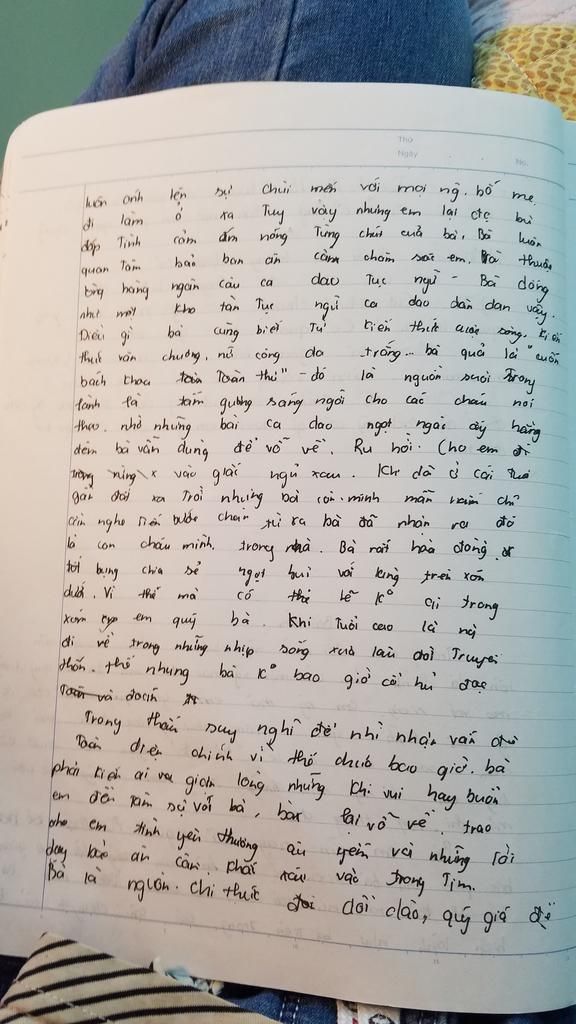 Thứ
Ngày No.
luôn ánh lên sự chìu mến với mọi ng. bố mẹ
đi làm ở xa Tuy vậy nhưng em lại đc bù
đáp Tình cảm ấm nóng Từng chút của bà. Bà luôn
quan Tâm bảo ban ân cần chăm sóc em. Bà thuộc
hàng ngàn câu ca dao Tục ngữ - Bà đóng
như một kho tàn Tục ngữ ca dao dân dan vậy.
Điều gì bà cũng biết Từ kiến thức cuộc sống. kiến
thức văn chương, nữ công da trống... bà quả là "cuốn
bách khoa Toàn thư" - đó là nguồn suối Trong
lành là tấm gương sáng ngời cho các cháu noi
theo. nhờ những bài ca dao ngọt ngào ấy hằng
đêm bà vẫn dung để vỗ về. Ru hời. Cho em đi
vào giấc ngủ xau. Khi đã ở cái Tuổi
gần đất xa Trời nhưng bà còn minh mẫn chỉ
cần nghe Tiến bước chân từ xa bà đã nhận ra đó
là con cháu mình trong nhà. Bà rất hoà đồng
tốt bụng chia sẻ ngọt bui với làng trên xón
dưới. Vì thế mà có thể lẽ k° ai trong
xóm em quý bà. Khi Tuổi cao là
đi về trong những nhịp sống xưa lâu đời Truyền
thốn. thế nhưng bà k° bao giờ cổ hủ
Trong thân suy nghĩ để nhì nhận vấn đề
Toàn diện chính vì thế chưa bao giờ. bà
phải khiến ai va giận lòng những khi vui hay buồn
em đến tâm sự với bà, bà lại vỗ về. trao
cho em tình yêu thương âu yếm và những lời
dạy bảo ân cần. phát xáu vào trong Tim.
Bà là nguồn. chi thức dồi dào, quý giá để